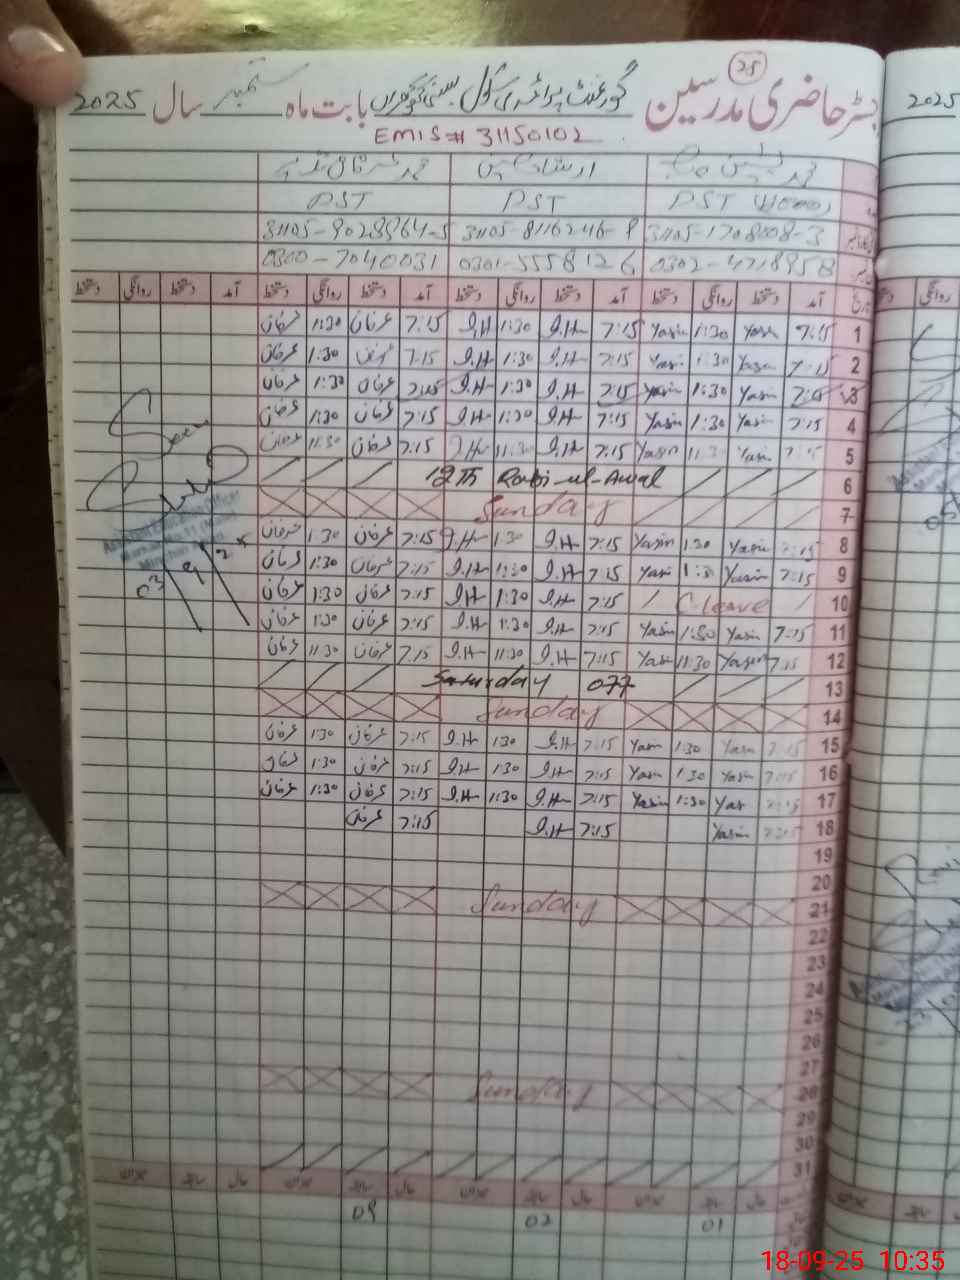 25
رجسٹر حاضری مدرسین گورنمنٹ پرائمری سکول بستی کھوکھراں بابت ماہ ستمبر سال 2025
EMIS# 31150102
محمد یٰسین ارشاد حسین محمد عرفان
PST PST PST
31105-1708108-3 31105-8116246-9
0302-4718958 0301-5558126 0300-7040031
تاریخ آمد دستخط روانگی دستخط آمد دستخط روانگی دستخط آمد دستخط روانگی دستخط آمد دستخط روانگی دستخط
1 7:15 Yasin 1:30 Yasin 7:15 I.H 1:30 I.H 7:15 عرفان 1:30 عرفان
2 7:15 Yasin 1:30 Yasin 7:15 I.H 1:30 I.H 7:15 عرفان 1:30 عرفان
3 7:15 Yasin 1:30 Yasin 7:15 I.H 1:30 I.H 7:15 عرفان 1:30 عرفان
4 7:15 Yasin 1:30 Yasin 7:15 I.H 1:30 I.H 7:15 عرفان 1:30 عرفان
5 7:15 Yasin 11:30 Yasin 7:15 I.H 11:30 I.H 7:15 عرفان 11:30 عرفان
6 12Th Rabi-ul-Awal
7 Sunday
8 7:15 Yasin 1:30 Yasin 7:15 I.H 1:30 I.H 7:15 عرفان 1:30 عرفان
9 7:15 Yasin 1:30 Yasin 7:15 I.H 1:30 I.H 7:15 عرفان 1:30 عرفان
10 C.leave 7:15 I.H 1:30 I.H 7:15 عرفان 1:30 عرفان
11 7:15 Yasin 1:30 Yasin 7:15 I.H 1:30 I.H 7:15 عرفان 1:30 عرفان
12 7:15 Yasin 11:30 Yasin 7:15 I.H 11:30 I.H 7:15 عرفان 11:30 عرفان
13 Saturday off
14 Sunday
15 7:15 Yasin 1:30 Yasin 7:15 I.H 1:30 I.H 7:15 عرفان 1:30 عرفان
16 7:15 Yasin 1:30 Yasin 7:15 I.H 1:30 I.H 7:15 عرفان 1:30 عرفان
17 7:15 Yasin 1:30 Yasin 7:15 I.H 1:30 I.H 7:15 عرفان 1:30 عرفان
18 7:15 Yasin 7:15 I.H 7:15 عرفان
19
20
21 Sunday
22
23
24
25
26
27
28 Sunday
29
30
31
Seen
Assistant Education Officer
03/9/25
حال سابقہ میزان حال سابقہ میزان حال سابقہ میزان حال سابقہ میزان
01 02 09
2025
روانگی
18-09-25 10:35